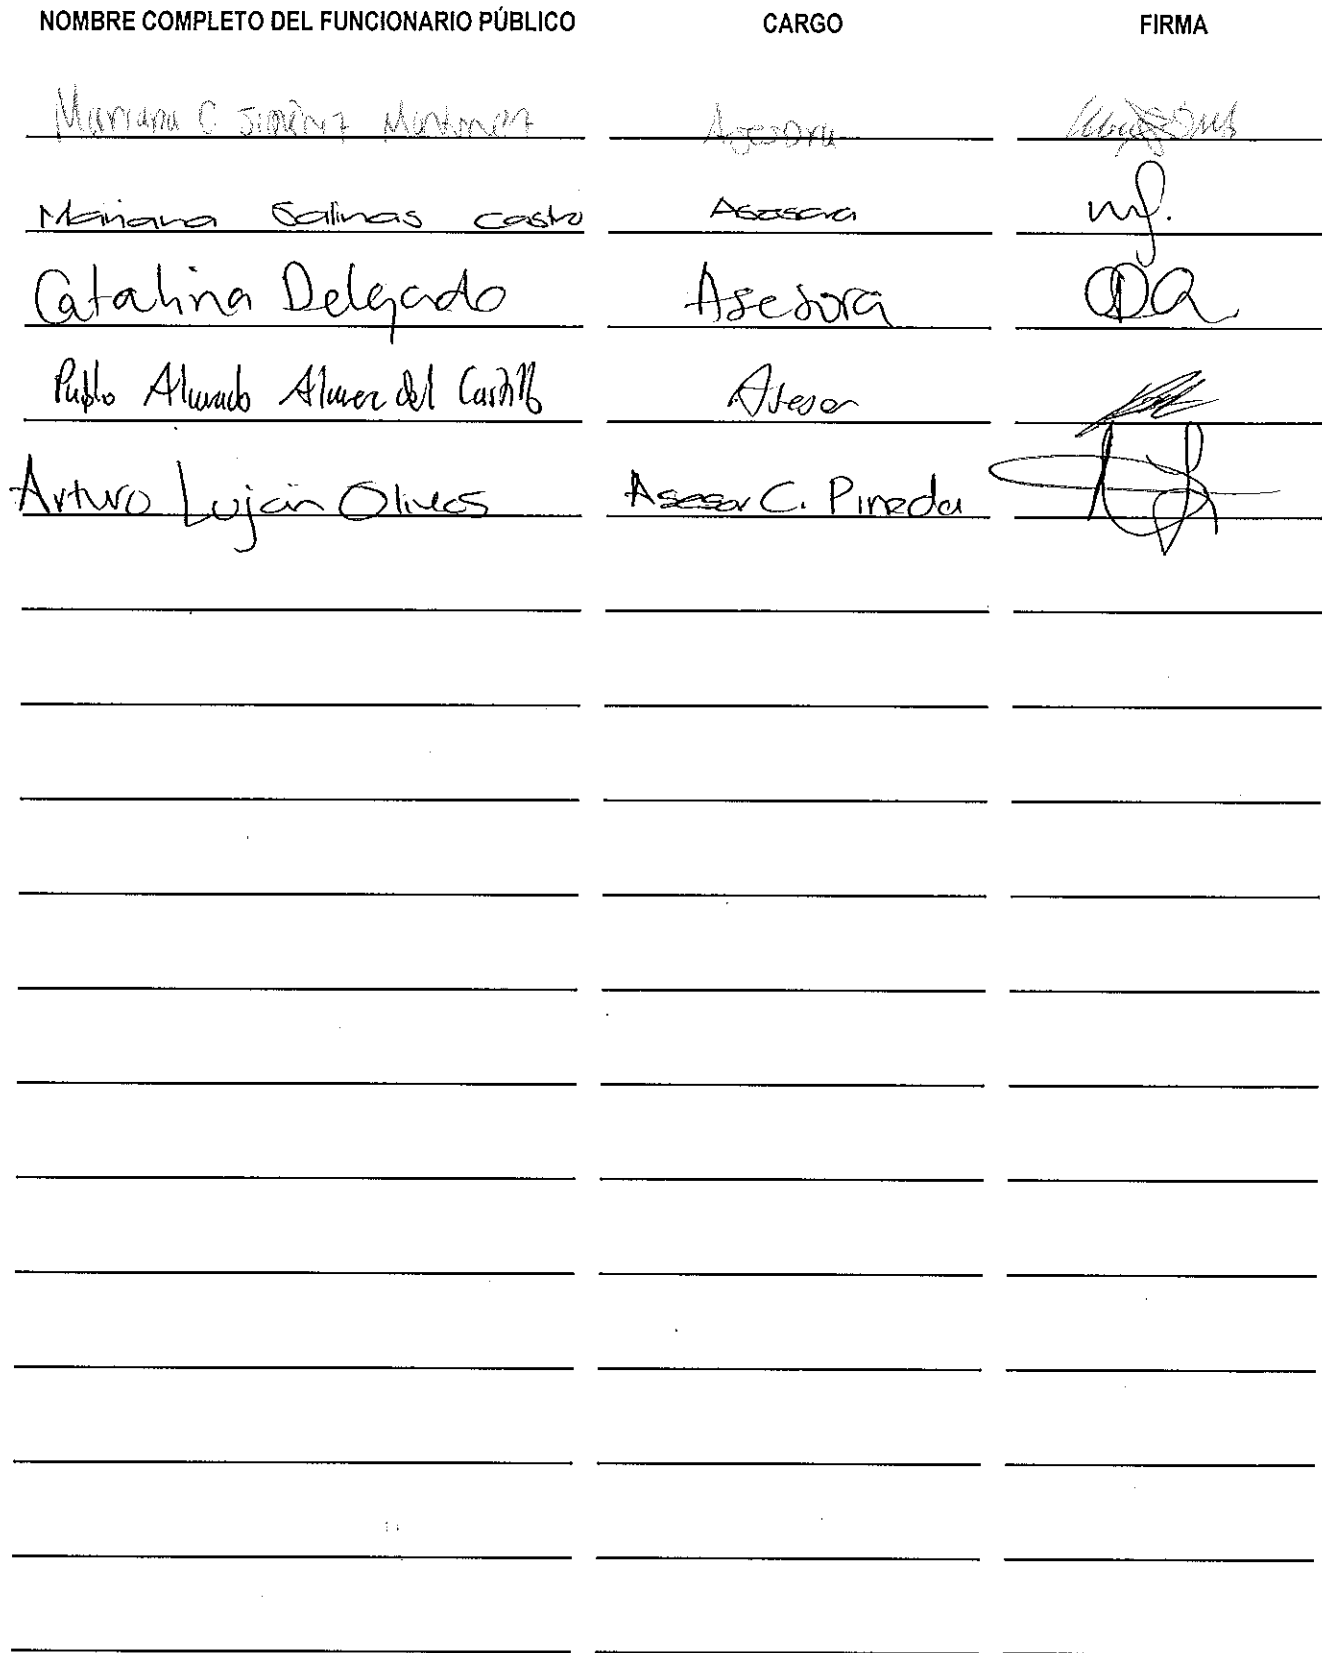 NOMBRE COMPLETO DEL FUNCIONARIO PÚBLICO CARGO FIRMA
Mariana C Jiménez Martínez Asesora
Mariana Salinas Castro Asesora
Catalina Delgado Asesora
Pablo Alvarado Alvarez del Castillo Asesor
Arturo Luján Olivas Asesor C. Pineda